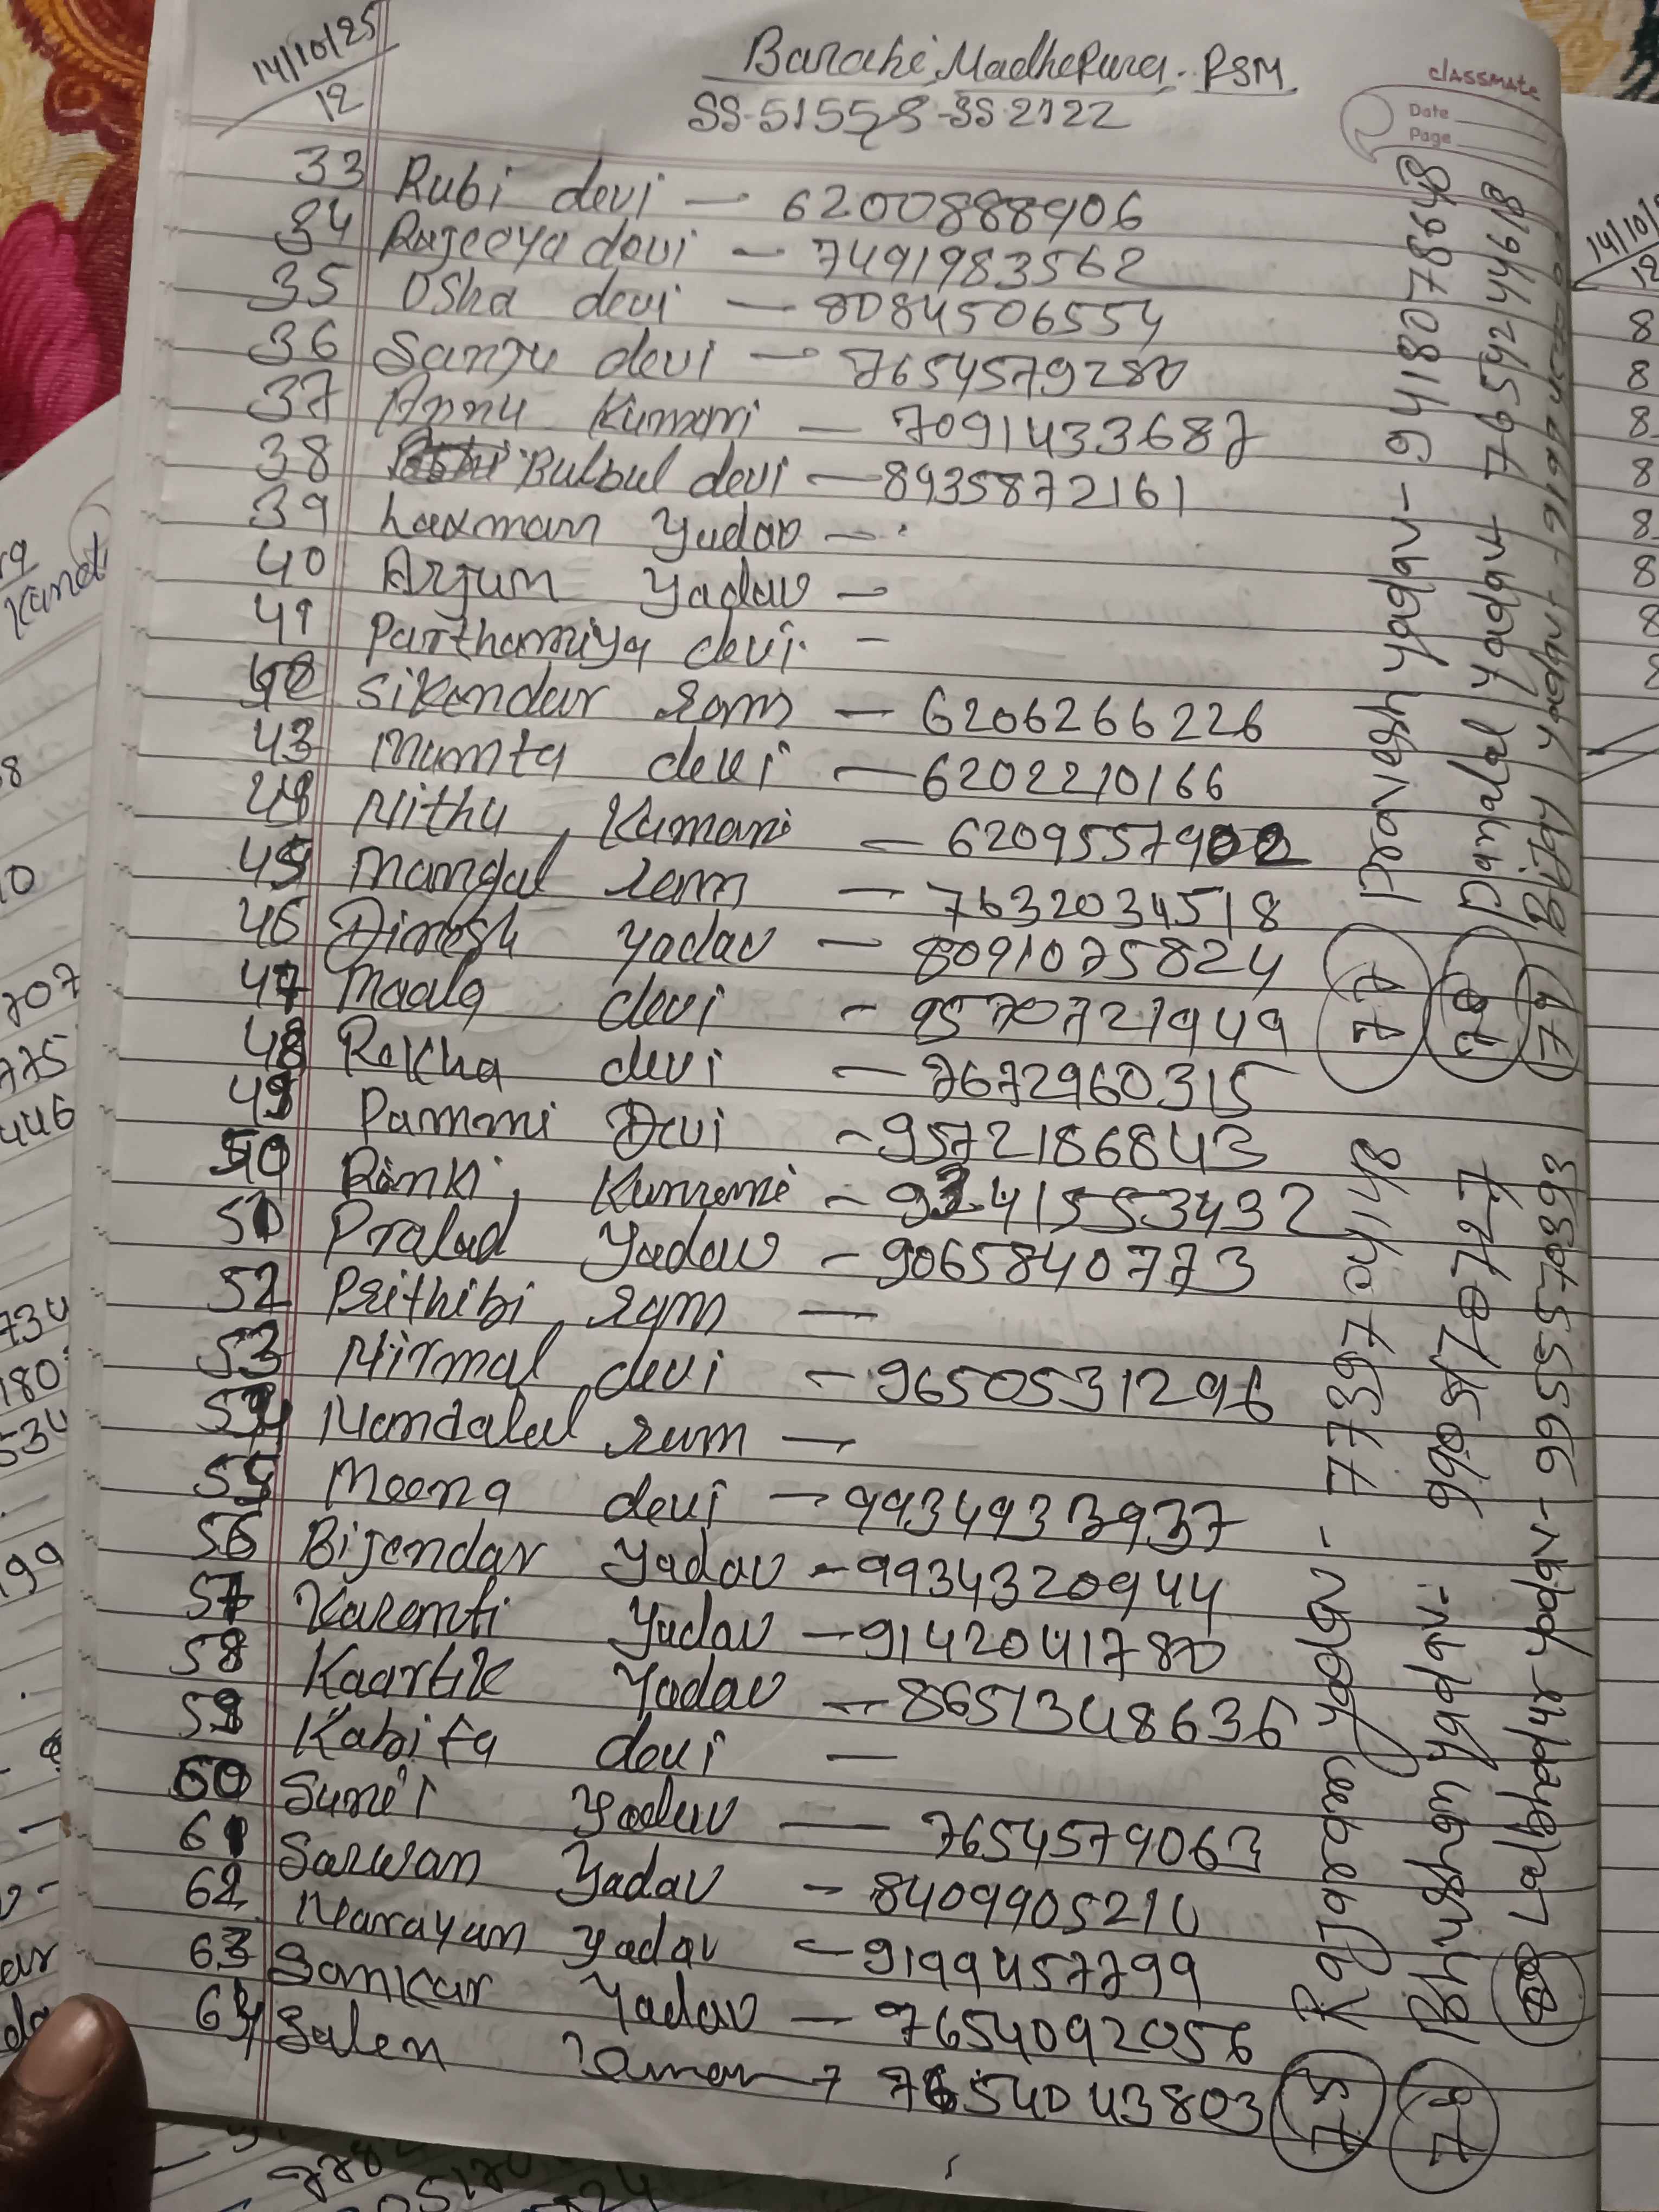 14/10/25
12
Barahi, Madhepura. PSM
SS-51558-SS-2122
classmate
Date
Page
33 Rubi devi - 6200888906
34 Rajeeya devi - 7491983562
35 Osha devi - 8084506554
36 Sanju devi - 7654579280
37 Annu Kumari - 7091433687
38 Bulbul devi - 8935872161
39 Laxman Yadav -
40 Arjun Yadav -
41 Parthamiya devi -
42 Sikendar ram - 6206266226
43 Mamta devi - 6202210166
44 Nithu Kumari - 6209557902
45 Mangal ram - 7632034518
46 Dinesh Yadav - 8091075824
47 Maala devi - 9570721949
48 Rekha devi - 7672960315
49 Pammi Devi - 9572186843
50 Rinki Kumari -
51 Pralad Yadav - 9065840773
52 Prithibi ram -
53 Nirmal devi - 9650531296
54 Nandalal ram -
55 Meena devi - 9934933937
56 Bijendar Yadav - 9934320944
57 Karenti Yadav - 9142041780
58 Kaartik Yadav - 8651348636
59 Kabita devi -
60 Sunil Yadav - 7654579063
61 Sarwan Yadav - 8409905210
62 Narayan Yadav - 9199457799
63 Sankar Yadav - 7654092056
64 Salen - 7654043803
75 Rajaram Yadav - 7739704148
76 Bhushan yadav - 9905
77 Pravesh yadav - 9418078648
78 Damalal yadav - 7654244618
79 Bijay yadav -
80 Lalbhadur yadav - 9955570393